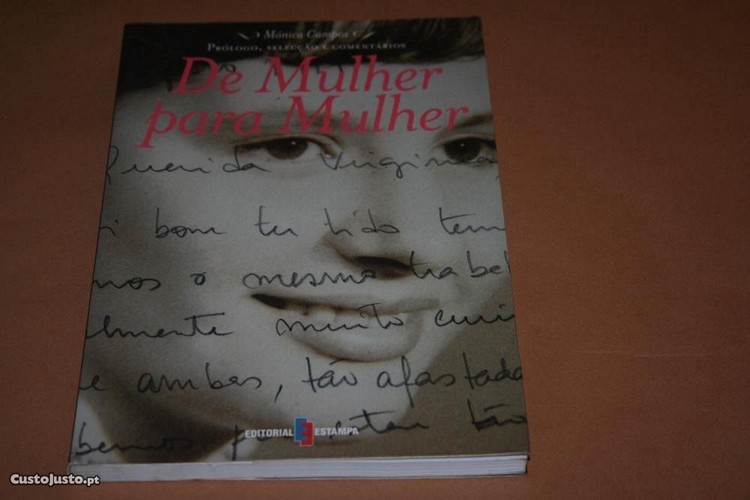 Mónica Campos
PRÓLOGO, SELECÇÃO E COMENTÁRIOS
De Mulher
para Mulher
Querida Virginia,
i bom ter tido tem
mos o mesmo trabal
lmente muito curi
e ambas, tão afastada
bemos tão
EDITORIAL ESTAMPA
CustoJusto.pt